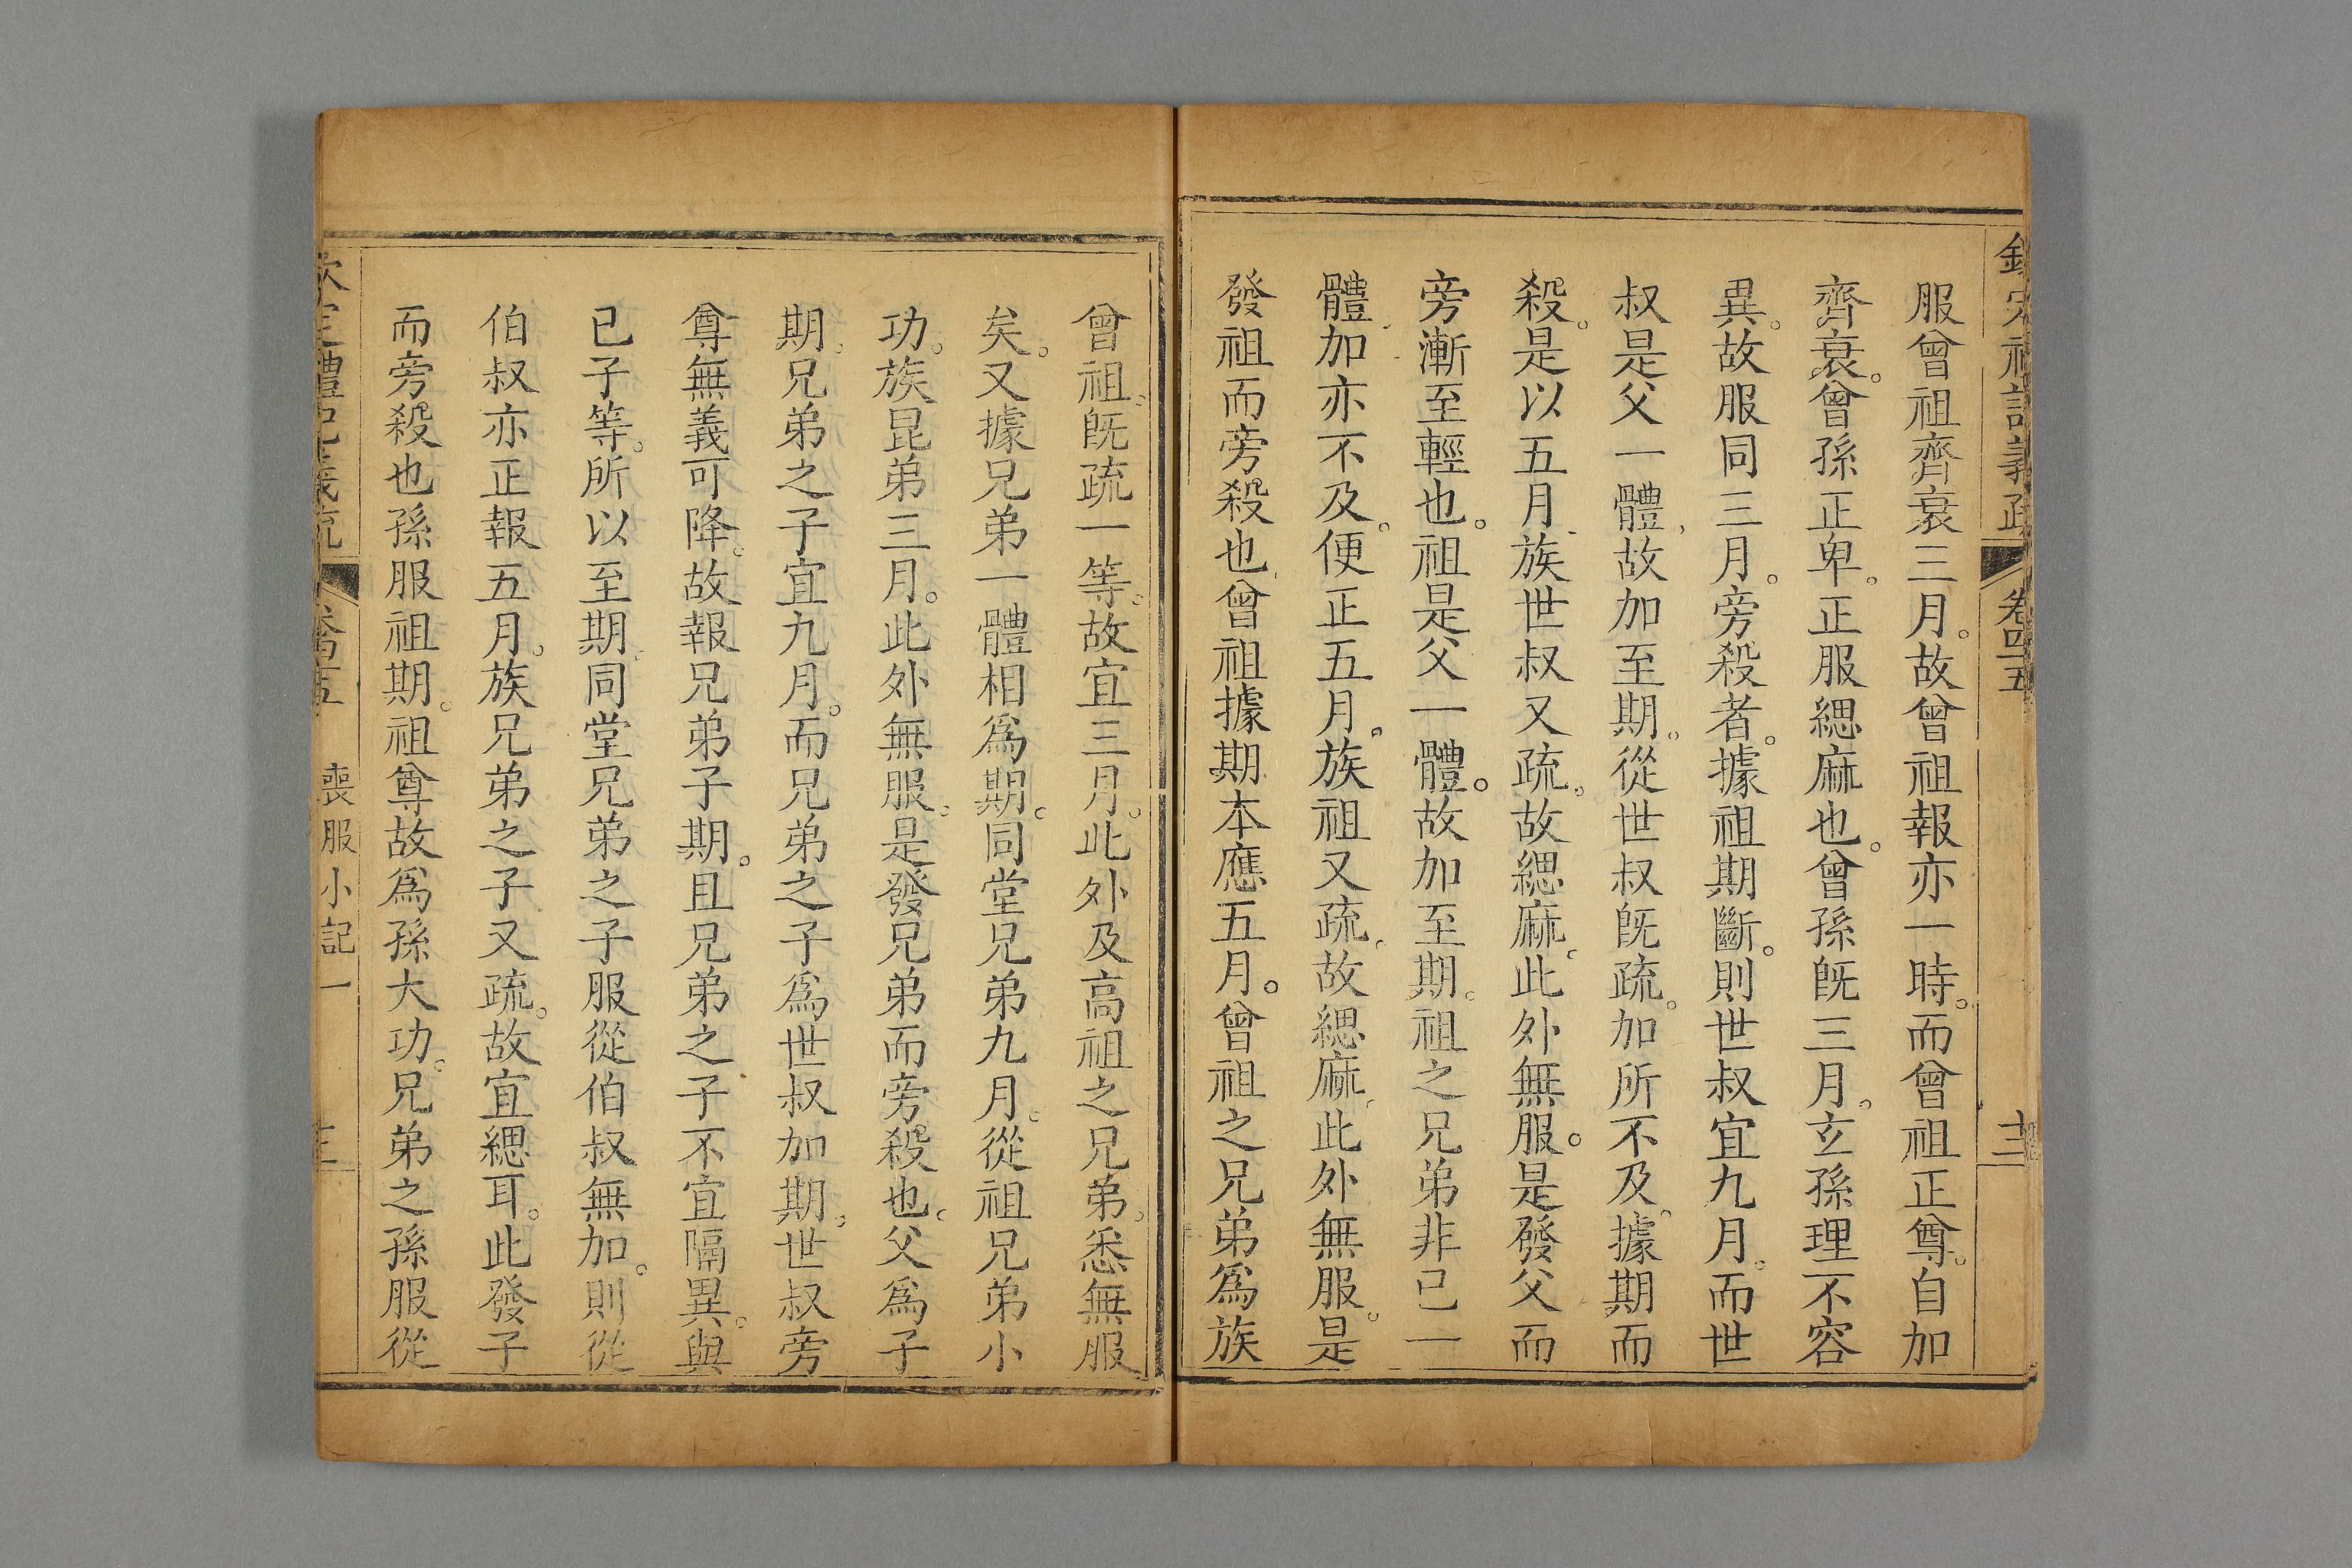 服曾祖齊衰三月。故曾祖報亦一時。而曾祖正尊。自加
齊衰。曾孫正卑。正服緦麻也。曾孫旣三月。玄孫理不容
異。故服同三月。旁殺者。據祖期斷。則世叔宜九月。而世
叔是父一體。故加至期。從世叔旣疏。加所不及。據期而
殺。是以五月。族世叔又疏。故緦麻。此外無服。是發父而
旁漸至輕也。祖是父一體。故加至期。祖之兄弟非己一
體。加亦不及。便正五月。族祖又疏。故緦麻。此外無服。是
發祖而旁殺也。曾祖據期本應五月。曾祖之兄弟爲族
曾祖。旣疏一等。故宜三月。此外及高祖之兄弟。悉無服
矣。又據兄弟一體相爲期。同堂兄弟九月。從祖兄弟小
功。族昆弟三月。此外無服。是發兄弟而旁殺也。父爲子
期。兄弟之子宜九月。而兄弟之子爲世叔加期。世叔旁
尊無義可降。故報兄弟子期。且兄弟之子不宜隔異。與
己子等。所以至期。同堂兄弟之子服從伯叔無加。則從
伯叔亦正報五月。族兄弟之子又疏。故宜緦耳。此發子
而旁殺也孫服祖期。祖尊故爲孫大功。兄弟之孫服從
欽定禮記義疏 卷四五 喪服小記一